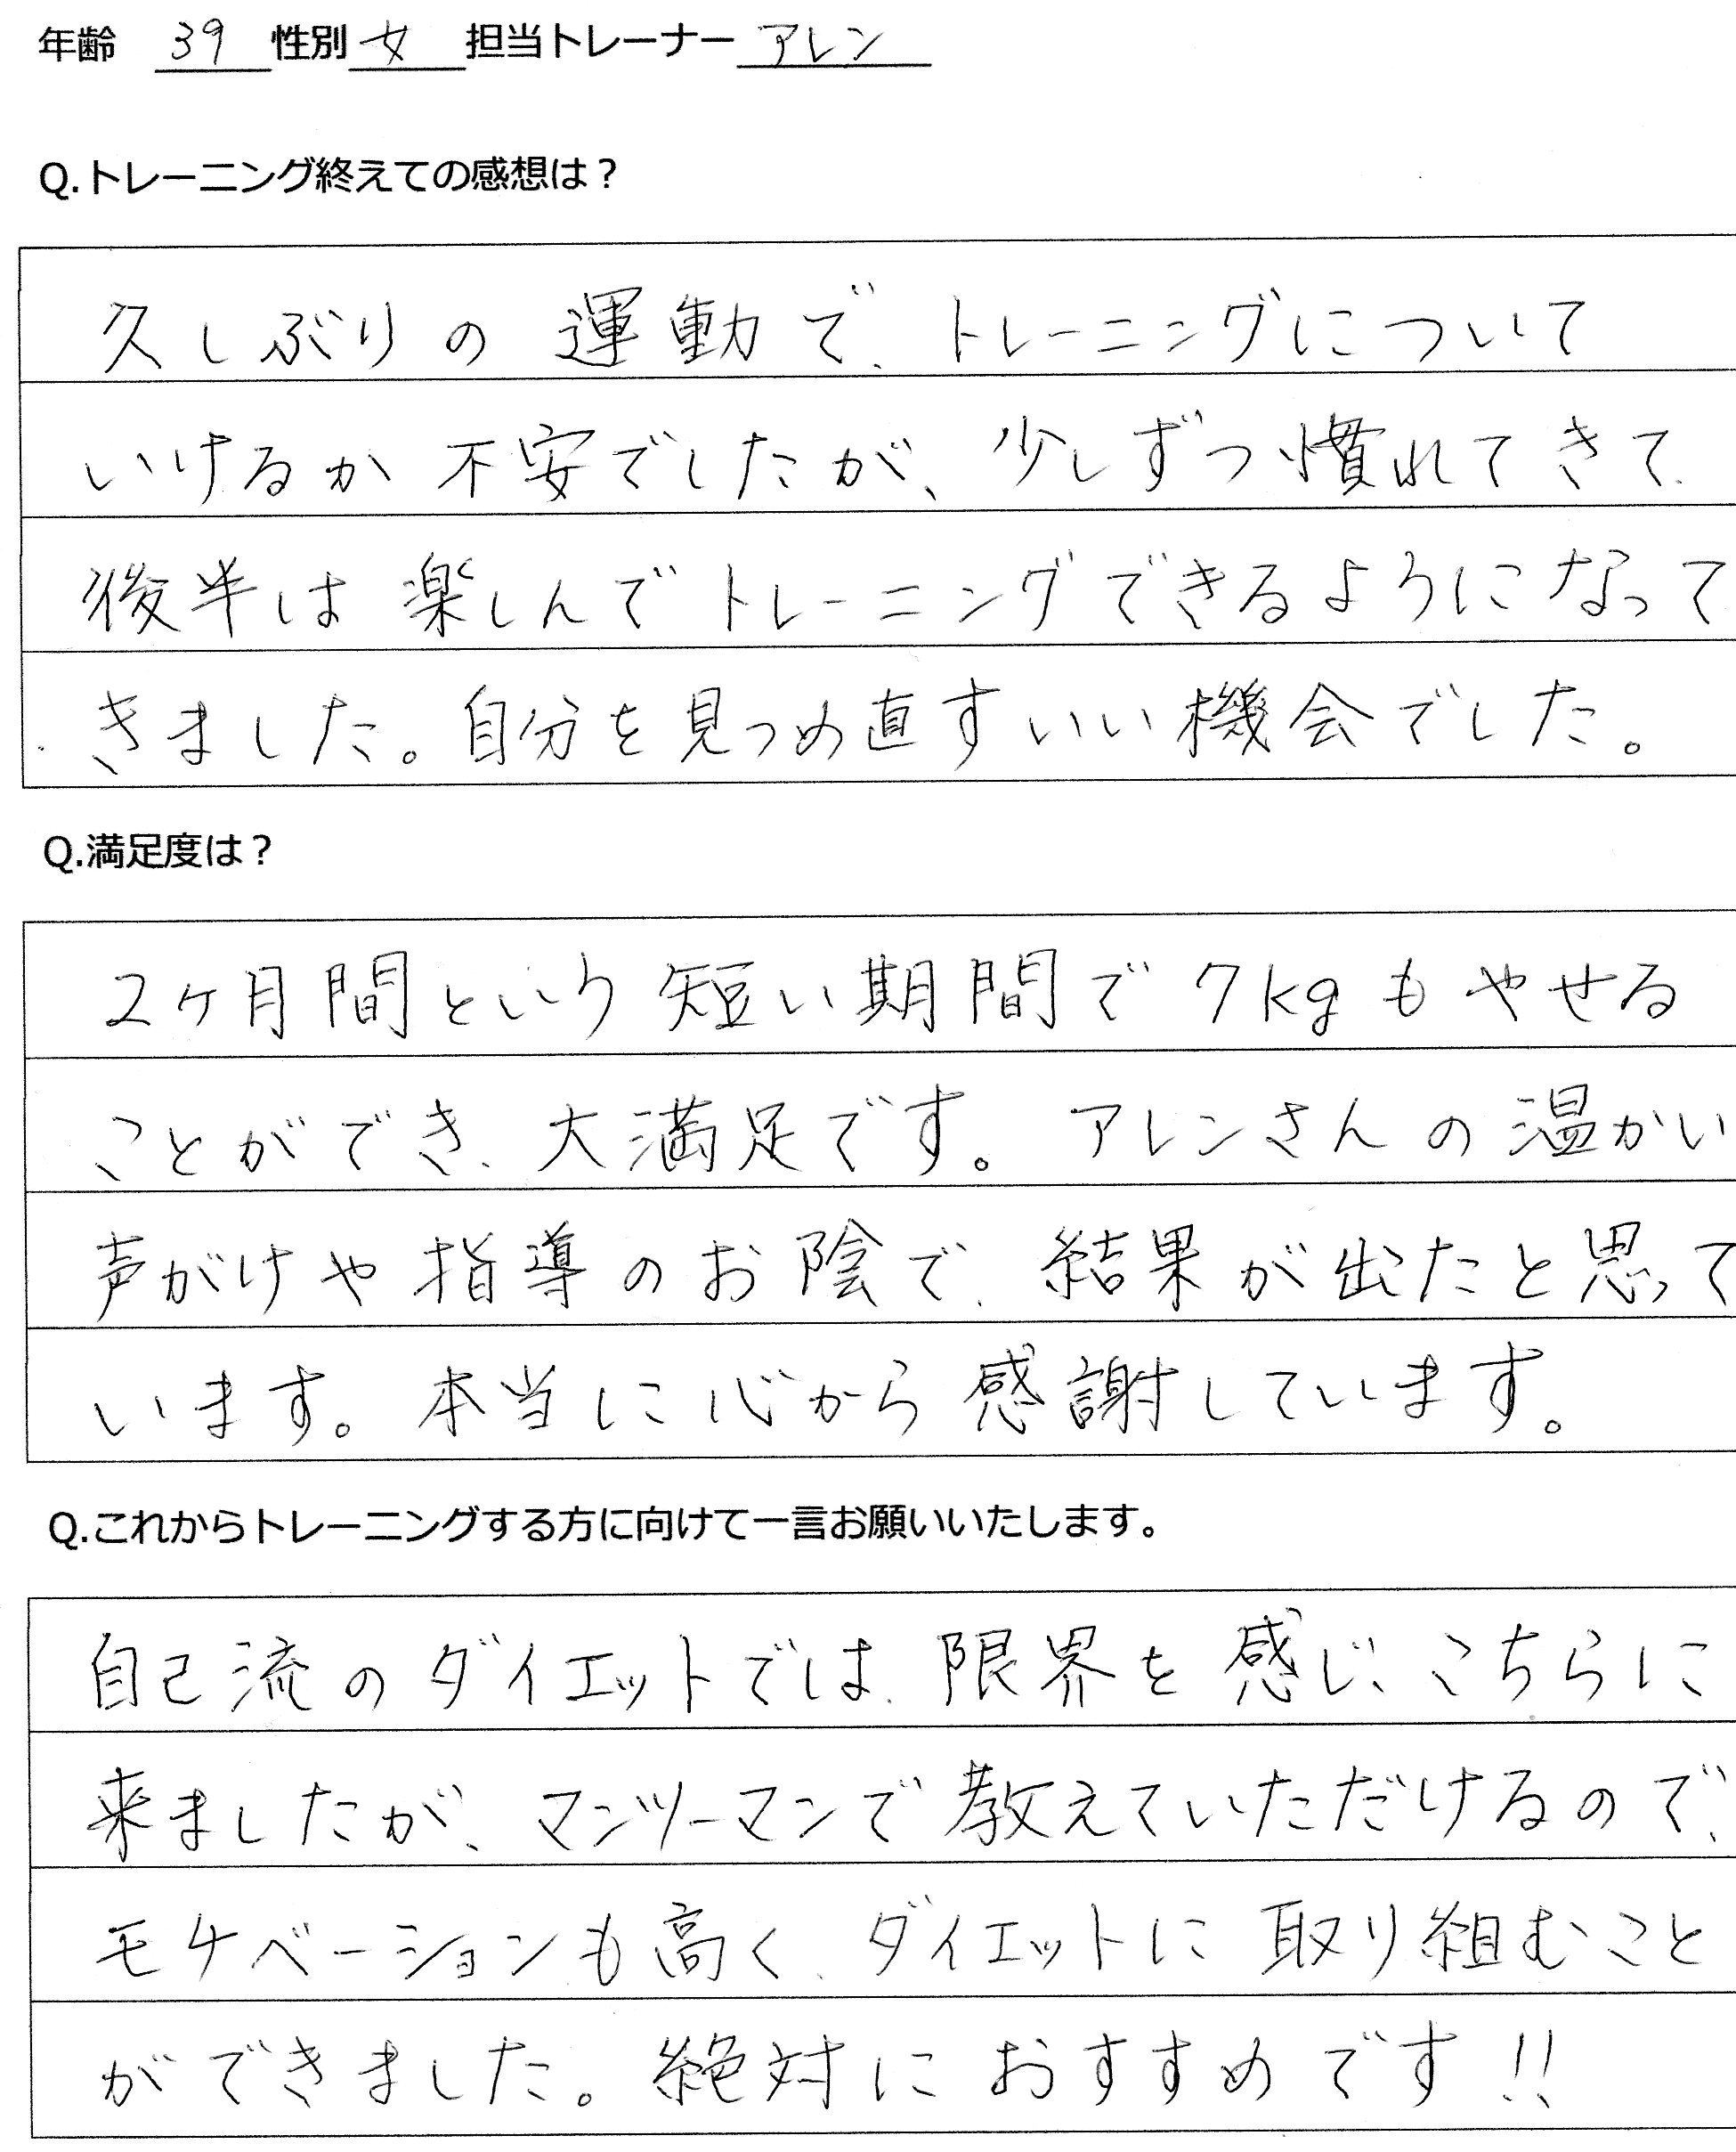 年齢 39 性別 女 担当トレーナー アレン
Q.トレーニング終えての感想は？
久しぶりの運動で、トレーニングについて
いけるか不安でしたが、少しずつ慣れてきて、
後半は楽しんでトレーニングできるようになって
きました。自分を見つめ直すいい機会でした。
Q.満足度は？
2ヶ月間という短い期間で7kgもやせる
ことができ、大満足です。アレンさんの温かい
声がけや指導のお陰で、結果が出たと思って
います。本当に心から感謝しています。
Q.これからトレーニングする方に向けて一言お願いいたします。
自己流のダイエットでは、限界を感じ、こちらに
来ましたが、マンツーマンで教えていただけるので、
モチベーションも高く、ダイエットに取り組むこと
ができました。絶対におすすめです!!